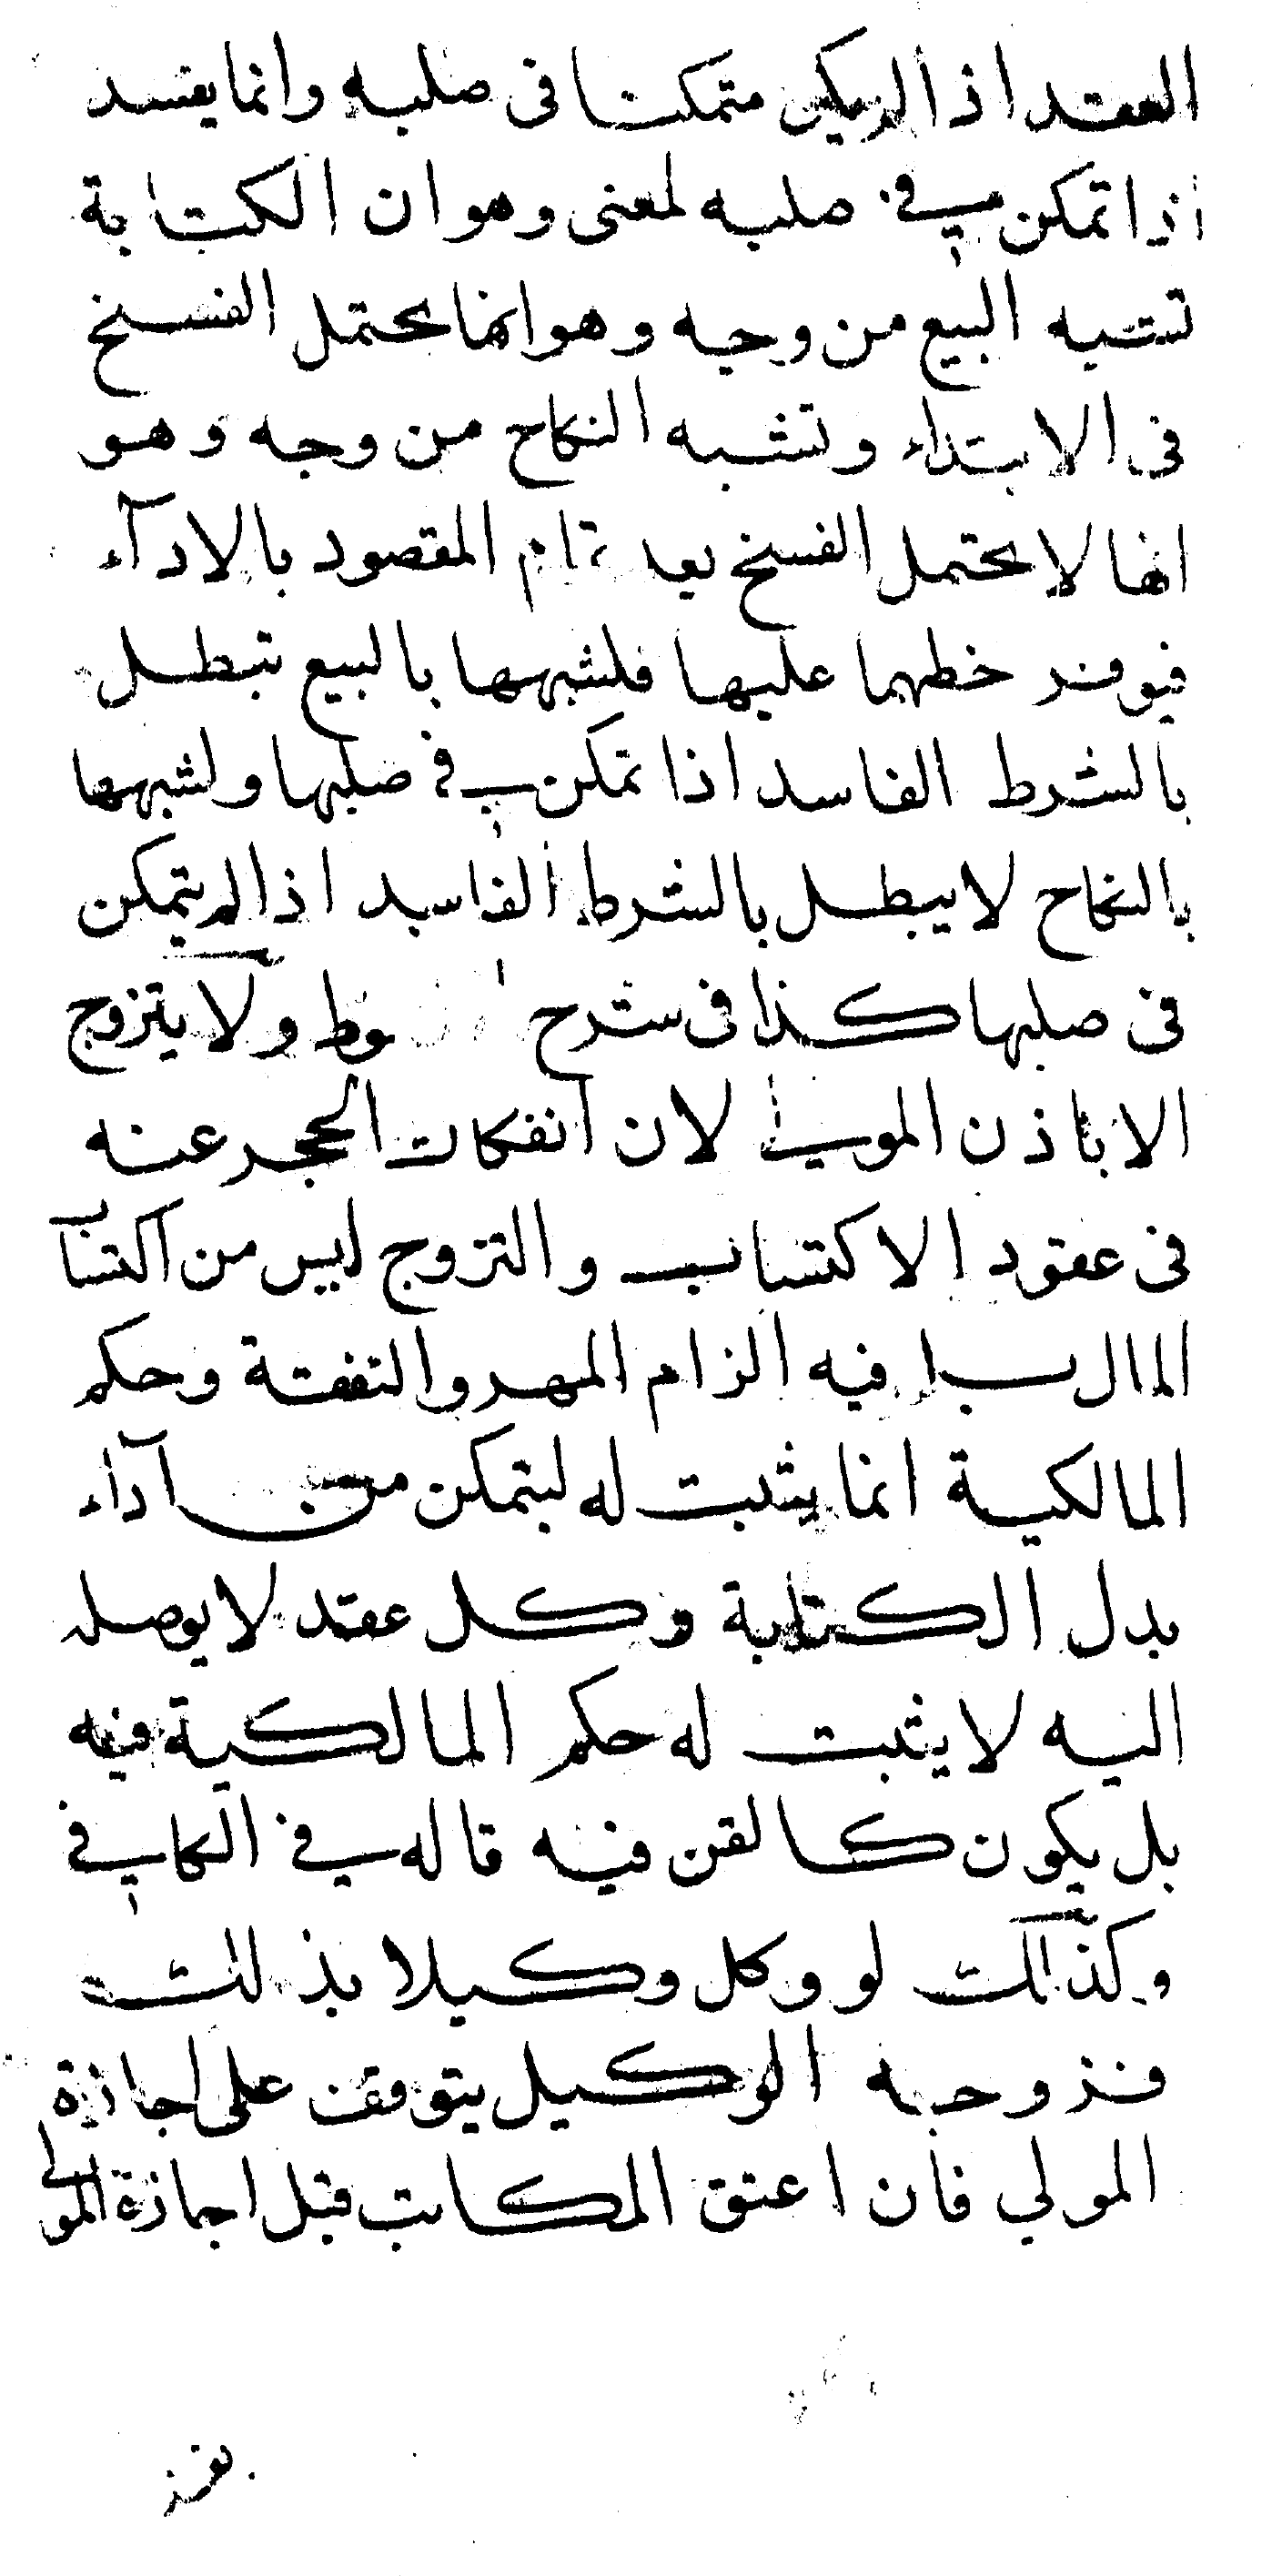 العقد اذا لم يكن متمكنا فى صلبه وانما يفسد
اذا تمكن في صلبه لمعنى وهو ان الكتابة
تشبه البيع من وجه وهو انها تحتمل الفسخ
فى الابتداء وتشبه النكاح من وجه وهو
انها لا تحتمل الفسخ بعد تمام المقصود بالادآء
فيوفر حظهما عليها فلشبهها بالبيع تبطل
بالشرط الفاسد اذا تمكن في صلبها ولشبهها
بالنكاح لا يبطل بالشرط الفاسد اذا لم يتمكن
فى صلبها كذا فى شرح ولا يتزوج
الا باذن المولى لان انفكاك الحجر عنه
فى عقود الاكتساب والتزوج ليس من اكتساب
المال بل فيه الزام المهر والنفقة وحكم
المالكية انما يثبت له ليتمكن من آداء
بدل الكتابة وكل عقد لا يوصله
اليه لا يثبت له حكم المالكية فيه
بل يكون كالقن فيه قاله في الكافي
وكذلك لو وكل وكيلا بذلك
فزوجه الوكيل يتوقف على اجازة
المولي فان اعتق المكاتب قبل اجازة المولى